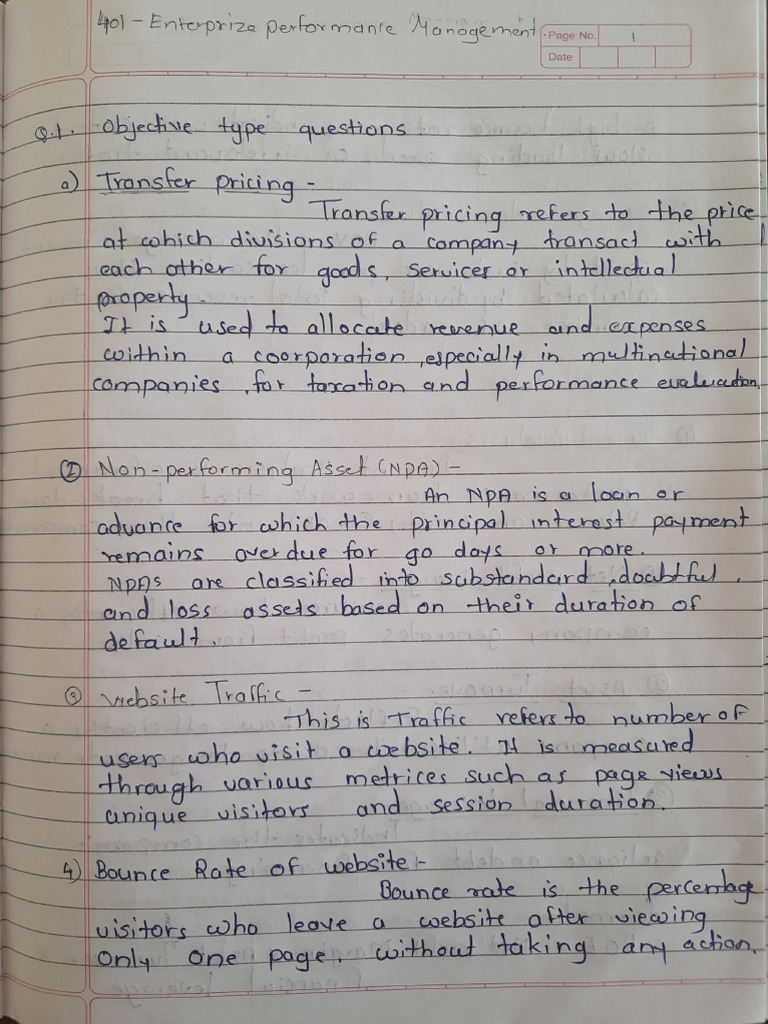 401 - Enterprize performance Management
Page No. 1
Date
Q.1. Objective type questions
a) Transfer pricing -
Transfer pricing refers to the price
at which divisions of a company transact with
each other for goods, services or intellectual
property.
It is used to allocate revenue and expenses
within a coorporation, especially in multinational
companies, for taxation and performance evaluation.
② Non-performing Asset (NPA) -
An NPA is a loan or
advance for which the principal interest payment
remains overdue for 90 days or more.
NPAs are classified into substandard, doubtful,
and loss assets based on their duration of
default.
③ Website Traffic -
This is Traffic refers to number of
users who visit a website. It is measured
through various metrices such as page views
unique visitors and session duration.
4) Bounce Rate of website :-
Bounce rate is the percentage
visitors who leave a website after viewing
only one page, without taking any action.